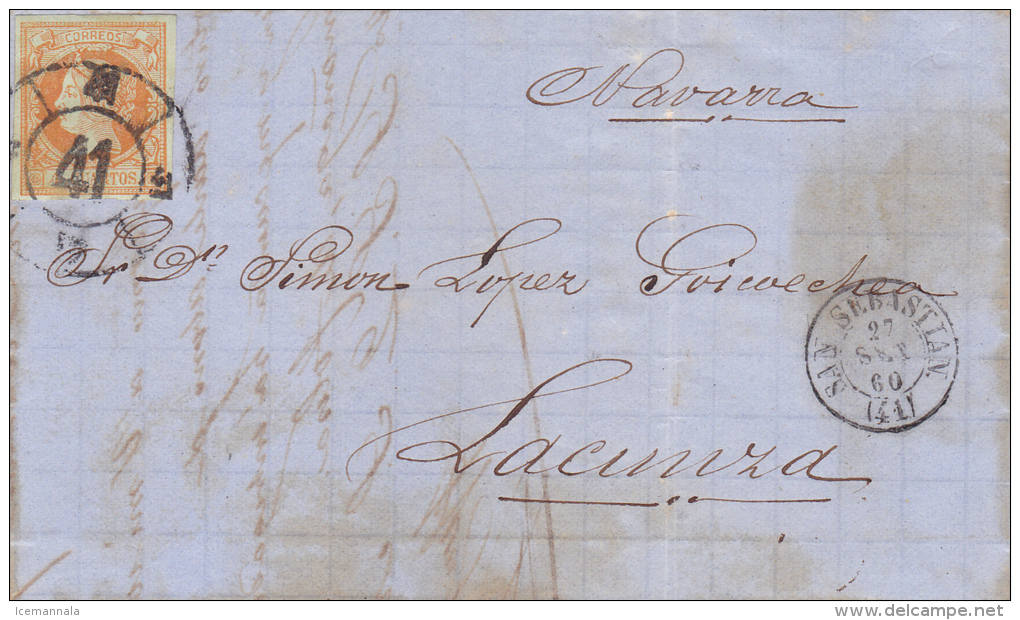 CORREOS
41
Navarra
Sr Dn Simon Lopez Goicoechea
SAN SEBASTIAN
27
SET
60
(41)
Lacunza
Icemannala
delcampe.net